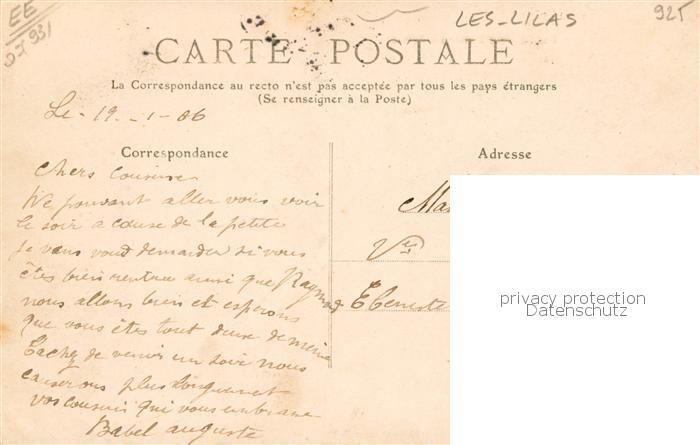 EE
DJ 931
LES-LILAS
925
CARTE POSTALE
La Correspondance au recto n'est pas acceptée par tous les pays étrangers
(Se renseigner à la Poste)
Le 19-1-06
Correspondance
Adresse
Chers Cousines
Ne pouvant aller vous voir
le soir a cause de la petite
je vans vous demander si vous
êtes bien rentree ainsi que Raymond
nous allons bien et esperons
que vous êtes tout deux de meme
Tachez de venir un soir nous
causerons plus longuement
vos cousins qui vous embrasse
Babel auguste
Ma
Ebeniste
privacy protection
Datenschutz